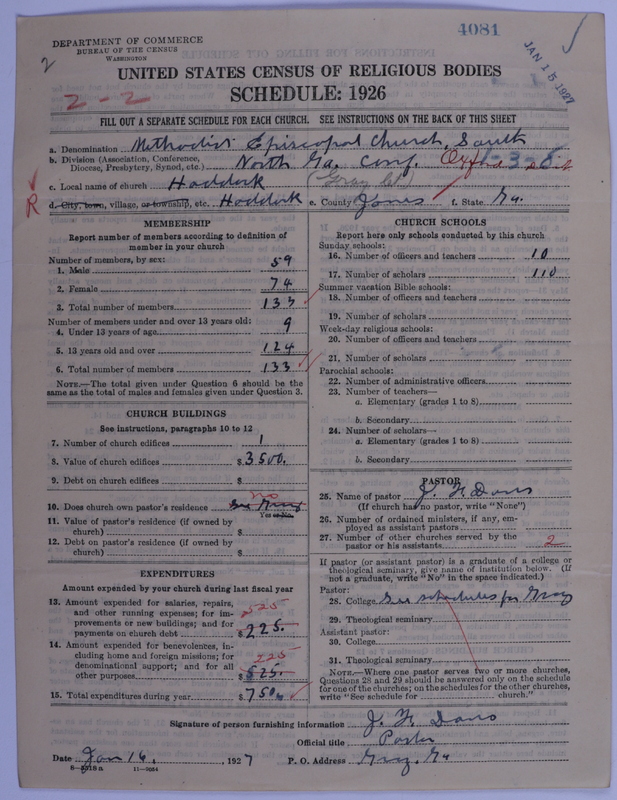 4081
JAN 15 1927
2
DEPARTMENT OF COMMERCE
BUREAU OF THE CENSUS
WASHINGTON
UNITED STATES CENSUS OF RELIGIOUS BODIES
2-2
SCHEDULE: 1926
FILL OUT A SEPARATE SCHEDULE FOR EACH CHURCH. SEE INSTRUCTIONS ON THE BACK OF THIS SHEET
a. Denomination Methodist Episcopal Church, South
b. Division (Association, Conference,
Diocese, Presbytery, Synod, etc.) North Ga. Conf. Oxford
c. Local name of church Haddock (Gray Ct)
R d. City, town, village, or township, etc. Haddock e. County Jones f. State Ga.
MEMBERSHIP
Report number of members according to definition of
member in your church
Number of members, by sex:
1. Male 59
2. Female 74
3. Total number of members 133
Number of members under and over 13 years old:
4. Under 13 years of age 9
5. 13 years old and over 124
6. Total number of members 133
NOTE.—The total given under Question 6 should be
same as the total of males and females given under Question 3.
CHURCH BUILDINGS
See instructions, paragraphs 10 to 12
7. Number of church edifices 1
8. Value of church edifices $3500.
9. Debt on church edifices $
no
10. Does church own pastor's residence See Gray
Yes or No.
11. Value of pastor's residence (if owned by
church) $
12. Debt on pastor's residence (if owned by
church) $
EXPENDITURES
Amount expended by your church during last fiscal year
13. Amount expended for salaries, repairs, 525
and other running expenses; for im-
provements or new buildings; and for
payments on church debt $225.
14. Amount expended for benevolences, in-
cluding home and foreign missions; for 225
denominational support; and for all
other purposes $525.
15. Total expenditures during year $750.
CHURCH SCHOOLS
Report here only schools conducted by this church
Sunday schools:
16. Number of officers and teachers 10
17. Number of scholars 110
Summer vacation Bible schools:
18. Number of officers and teachers
19. Number of scholars
Week-day religious schools:
20. Number of officers and teachers
21. Number of scholars
Parochial schools:
22. Number of administrative officers
23. Number of teachers—
a. Elementary (grades 1 to 8)
b. Secondary
24. Number of scholars—
a. Elementary (grades 1 to 8)
b. Secondary
PASTOR
25. Name of pastor J. F. Davis
(If church has no pastor, write "None")
26. Number of ordained ministers, if any, em-
ployed as assistant pastors
27. Number of other churches served by the
pastor or his assistants 2
If pastor (or assistant pastor) is a graduate of a college or
theological seminary, give name of institution below. (If
not a graduate, write "No" in the space indicated.)
Pastor:
28. College See schedules for Gray
29. Theological seminary
Assistant pastor:
30. College
31. Theological seminary
NOTE.—Where one pastor serves two or more churches,
Questions 28 and 29 should be answered only on the schedule
for one of the churches; on the schedules for the other churches,
write "See schedule for church."
Signature of person furnishing information J. F. Davis
Official title Pastor
Date Jan 14, 1927 P. O. Address Gray, Ga
8-5518a 11-9084